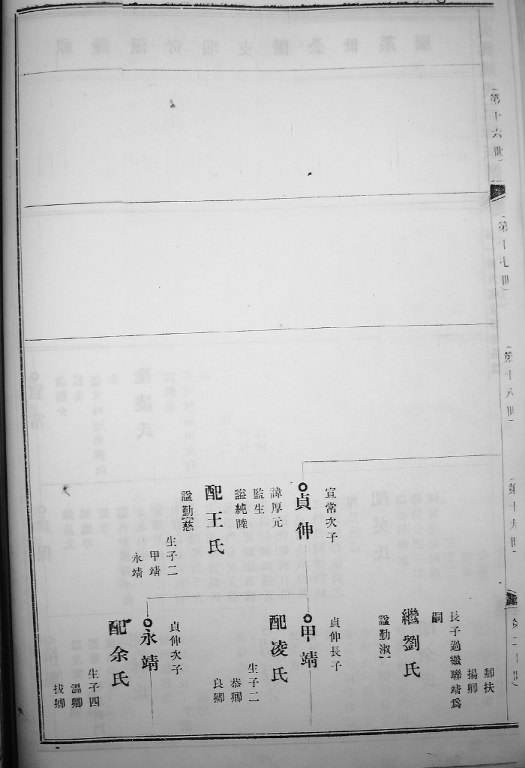 第十六世
第十七世
第十八世
第十九世
第二十世
宣常次子
貞伸
諱厚元
監生
謚純睦
配王氏
謚勤慈
生子二
甲靖
永靖
扶
卿
揚卿
長子過繼聯靖爲
嗣
繼劉氏
謚勤淑
貞伸長子
甲靖
配凌氏
生子二
恭卿
良卿
貞伸次子
永靖
配余氏
生子四
溫卿
拔卿